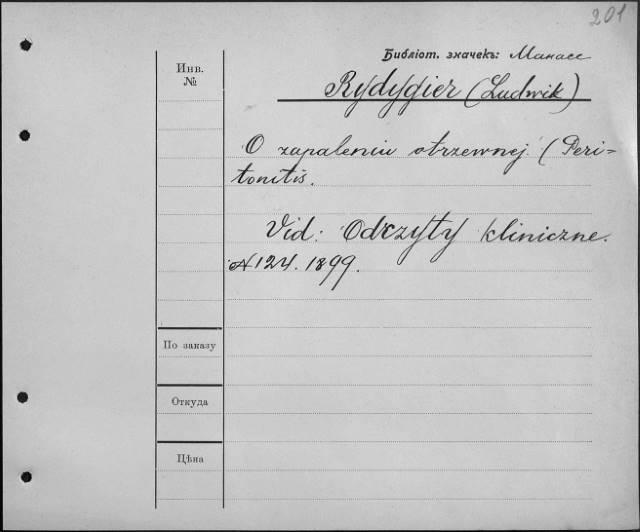 201
Библіот. значекъ: Манассе
Инв.
№
Rydygier (Ludwik)
O zapaleniu otrzewnej. (Peri=
tonitis.
Vid: Odczyty kliniczne.
№ 124. 1899.
По заказу
Откуда
Цѣна